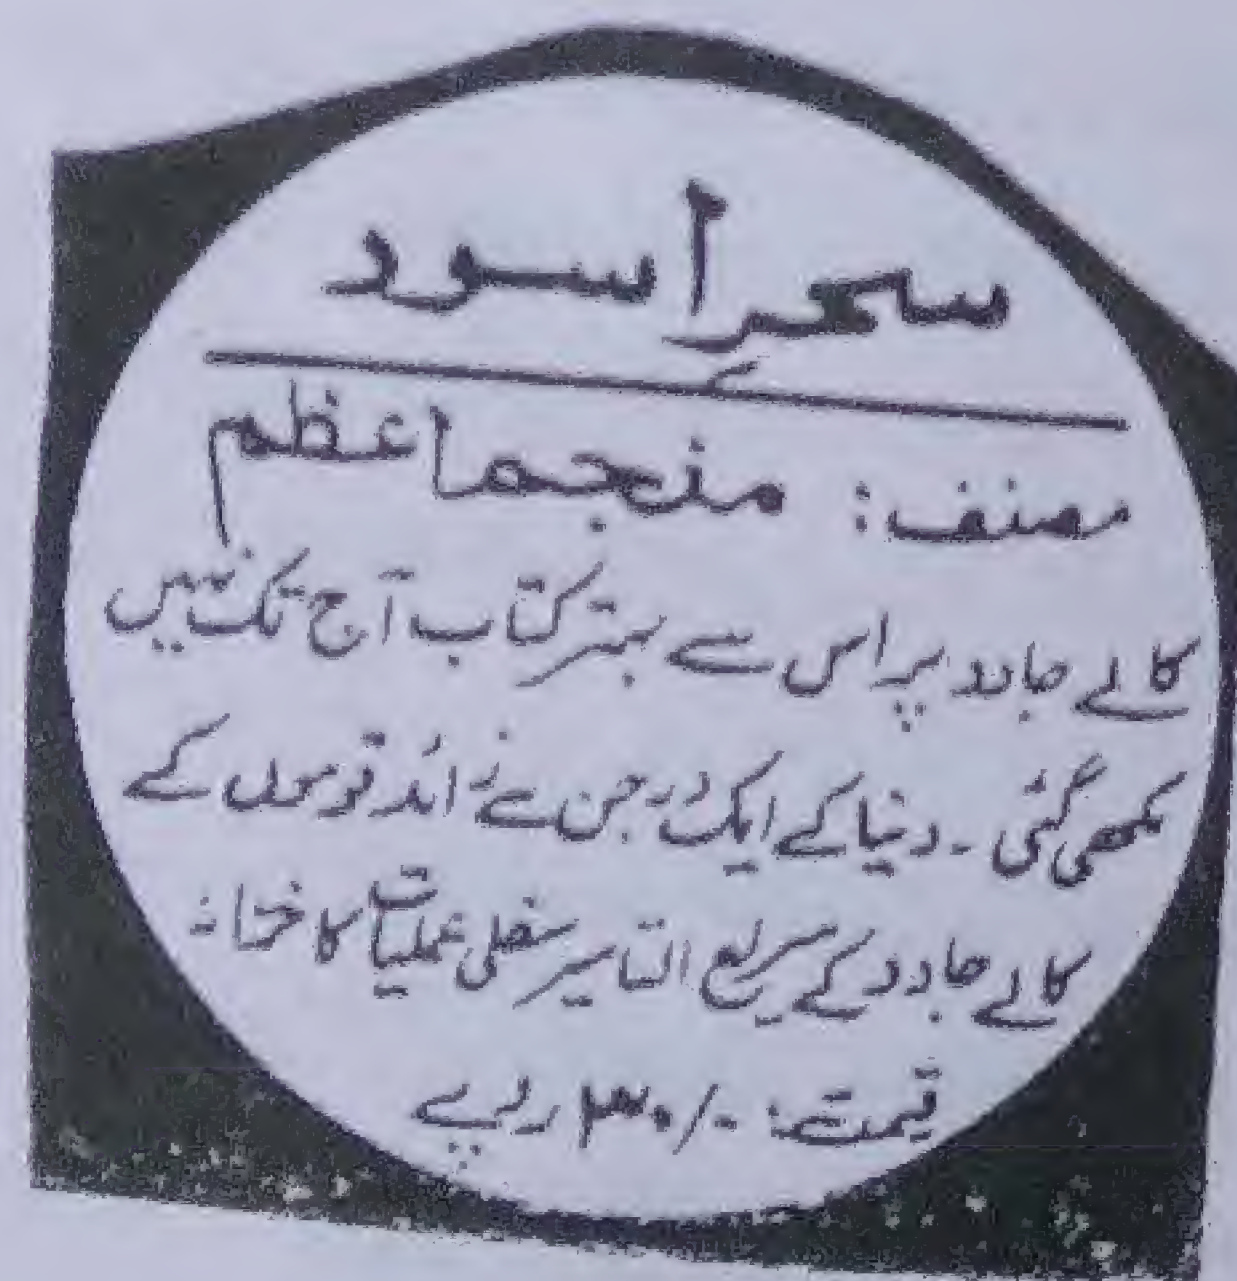 سحر اسود
مصنف: منجم اعظم
کالے جادو پر اس سے بہتر کتاب آج تک نہیں
لکھی گئی ۔ دنیا کے ایک درجن سے زائد قوموں کے
کالے جادو کے سریع التاثیر سفلی عملیات کا خزانہ
قیمت: ۳۰/۰ روپے